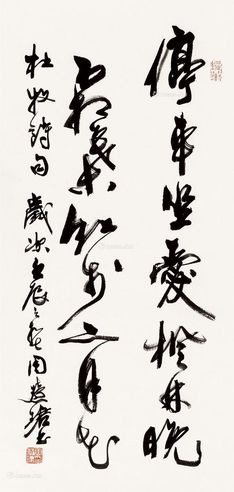 停車坐愛楓林晚
霜葉紅於二月花
杜牧詩句 歲次壬辰之 周